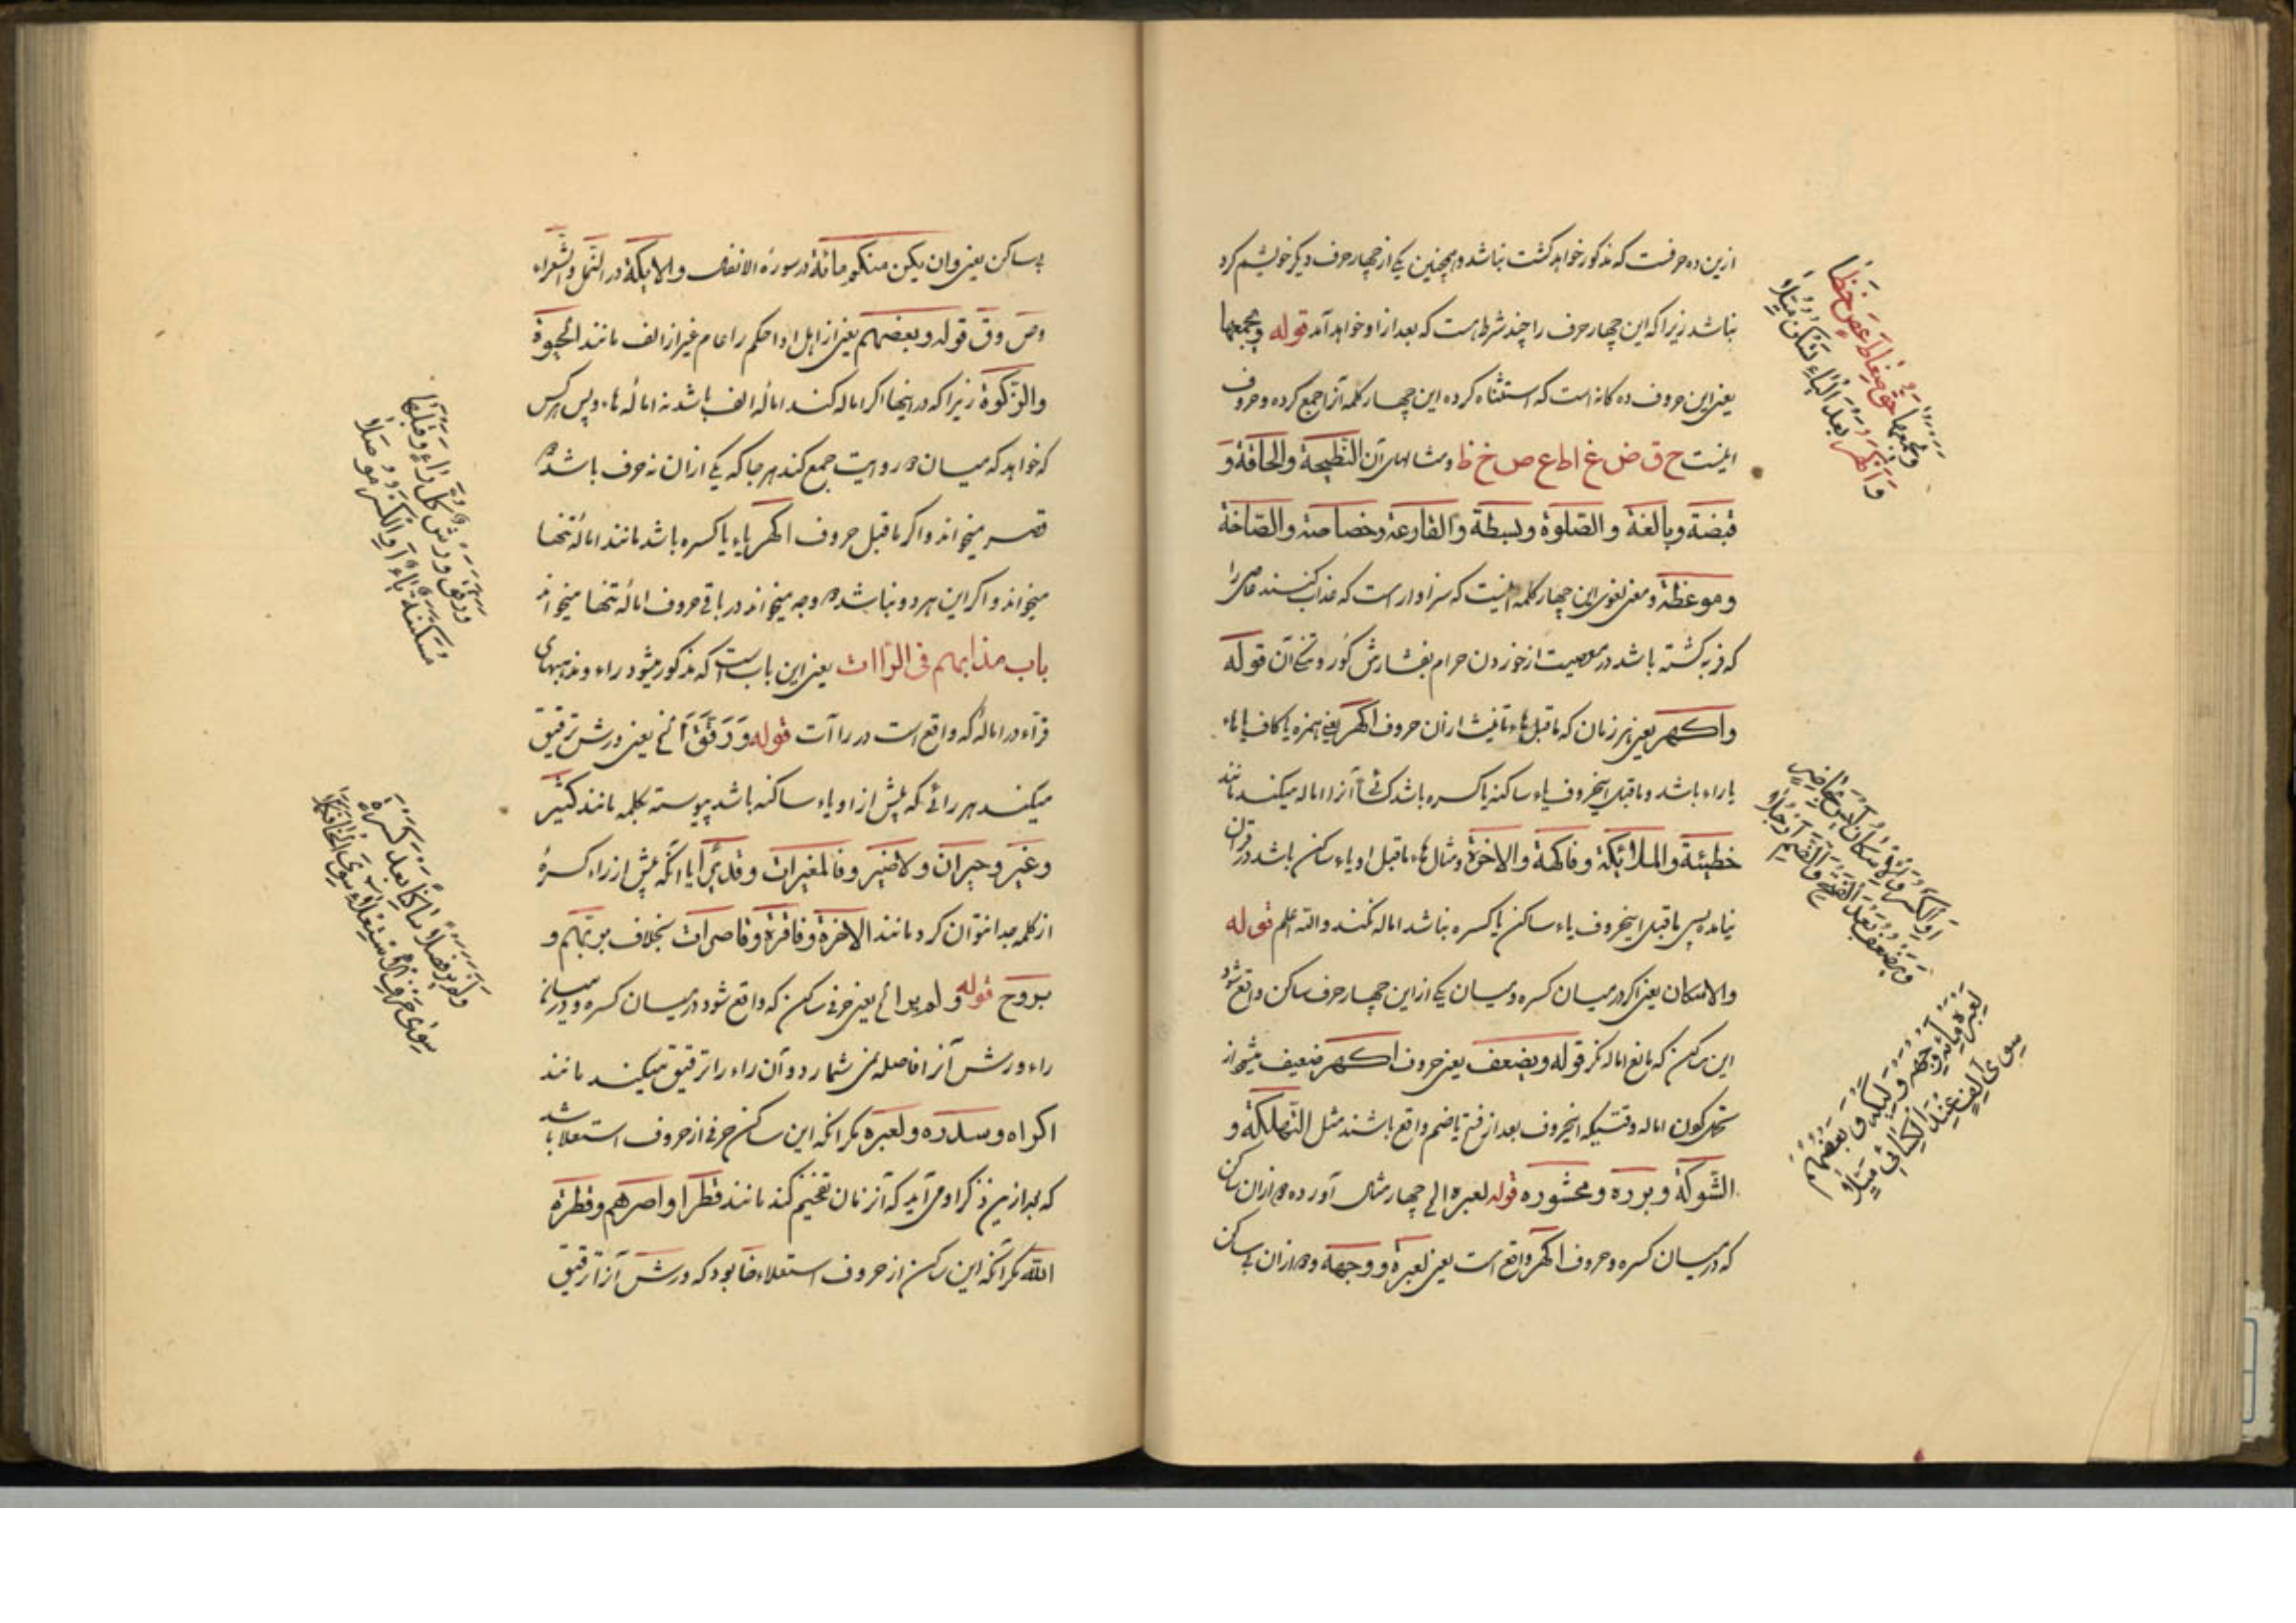 ازین ده حرفست که مذکور خواهد کشت نباشد و همچنین یکی از چهار حرف دیکر خوشیم کرد
نباشد زیرا که این چهار حرف را چند شرط است که بعد از او خواهد آمد قوله ویجمعها
یعنی این حروف ده کانه است که استثناء کرده این چهار کلمه آنرا جمع کرده و حروف
اینست ح ق ض غ ا ط ع ص خ ظ و مثالهای آن النطیحة والحاقة و
قبضة وبالغة والصلوة وبسطة والقارعة وخصاصة والصاخة
وموعظة و معنی لغوی این چهار کلمه اینست که سزاوار است که عذاب کنند عاصی را
که فربه کشته باشد در معصیت از خوردن حرام بفشارش کور و تنکی آن قوله
واکهر یعنی هر زمان که ماقبل هاء تانیث ازان حروف اکهر یعنی همزه یا کاف یا هاء
یا راء باشد و ماقبل اینحروف یاء ساکنه یا کسره باشد کسائی آنرا اماله میکند مانند
خطیئة والملائکة وفاکهة والاخرة و مثال هاء ماقبل او یاء ساکن باشد در قرآن
نیامده پس ماقبل اینحروف یاء ساکن یا کسره نباشد اماله نکند والله اعلم قوله
والاسکان یعنی اکر در میان کسره و میان یکی از این چهار حرف ساکن واقع شود
این ساکن که مانع اماله نکر قوله ویضعف یعنی حروف اکهر ضعیف میشود از
تحمل کون اماله وقتیکه اینحروف بعد از فتح یا ضم واقع باشند مثل التهلکة و
الشوکة وبررة ومحشورة قوله لعبره الی چهار مثال آورده دو ازان ساکن
که در میان کسره و حروف اکهر واقع است یعنی لعبرة و وجهة و دو ازان بی ساکن
ویجمعها حق ضغاط عص خظا
واکهر بعد الیاء یسکن میلا
او الکسر والاسکان لیس بحاجز
ویضعف بعد الفتح والضم ارجلا
لعبره مائه وجهه ولیکه وبعضهم
سوی الف عند الکسائی میلا
بی ساکن یعنی وان یکن منکم مائة در سوره الانفال والایکة در النمل والشعراء
وص وق قوله وبعضهم یعنی از اهل ادا حکم را عام غیر از الف مانند الحیوة
والزکوة زیرا که در اینجا اکر اماله کند اماله الف باشد نه اماله ها و پس هر کس
که خواهد که میان دو روایت جمع کند هر جا که یکی ازان نه حرف باشد
قصر میخواند و اکر ماقبل حروف اکهر یاء یا کسره باشد مانند اماله تنها
میخواند و اکر این هر دو نباشد دو وجه میخواند در باقی حروف اماله تنها میخواند
باب مذاهبهم فی الراات یعنی این باب است که مذکور میشود راء و مذهبهای
قراء در اماله که واقع است در راآت قوله ورقق الخ یعنی ورش ترقیق
میکند هر رائی که پیش از او یاء ساکنه باشد پیوسته بکلمه مانند کثیر
وغیر وحیران ولاضیر وفالمغیرات وقدیرا یا انکه پیش از راء کسره
از کلمه جدا نتوان کرد مانند الاخرة وفاقرة وقاصرات بخلاف بربهم و
بروح قوله ولم یر الخ یعنی حرفی ساکن که واقع شود در میان کسره و در میانه
راء ورش آنرا فاصله نمی شمارد و آن راء را ترقیق میکند مانند
اکراه وسدرة ولعبره مکر انکه این ساکن حرفی از حروف استعلا باشد
که بعد ازین ذکر او می آید که آنزمان تفخیم کند مانند قطرا واصرهم وفطرة
الله مکر انکه این ساکن از حروف استعلاء خا بود که ورش آنرا ترقیق
ورقق ورش کل راء وقبلها
مسکنة یاء او الکسر موصلا
ولم یر فصلا ساکنا بعد کسرة
سوی حرف الاستعلا سوی الخا فکملا